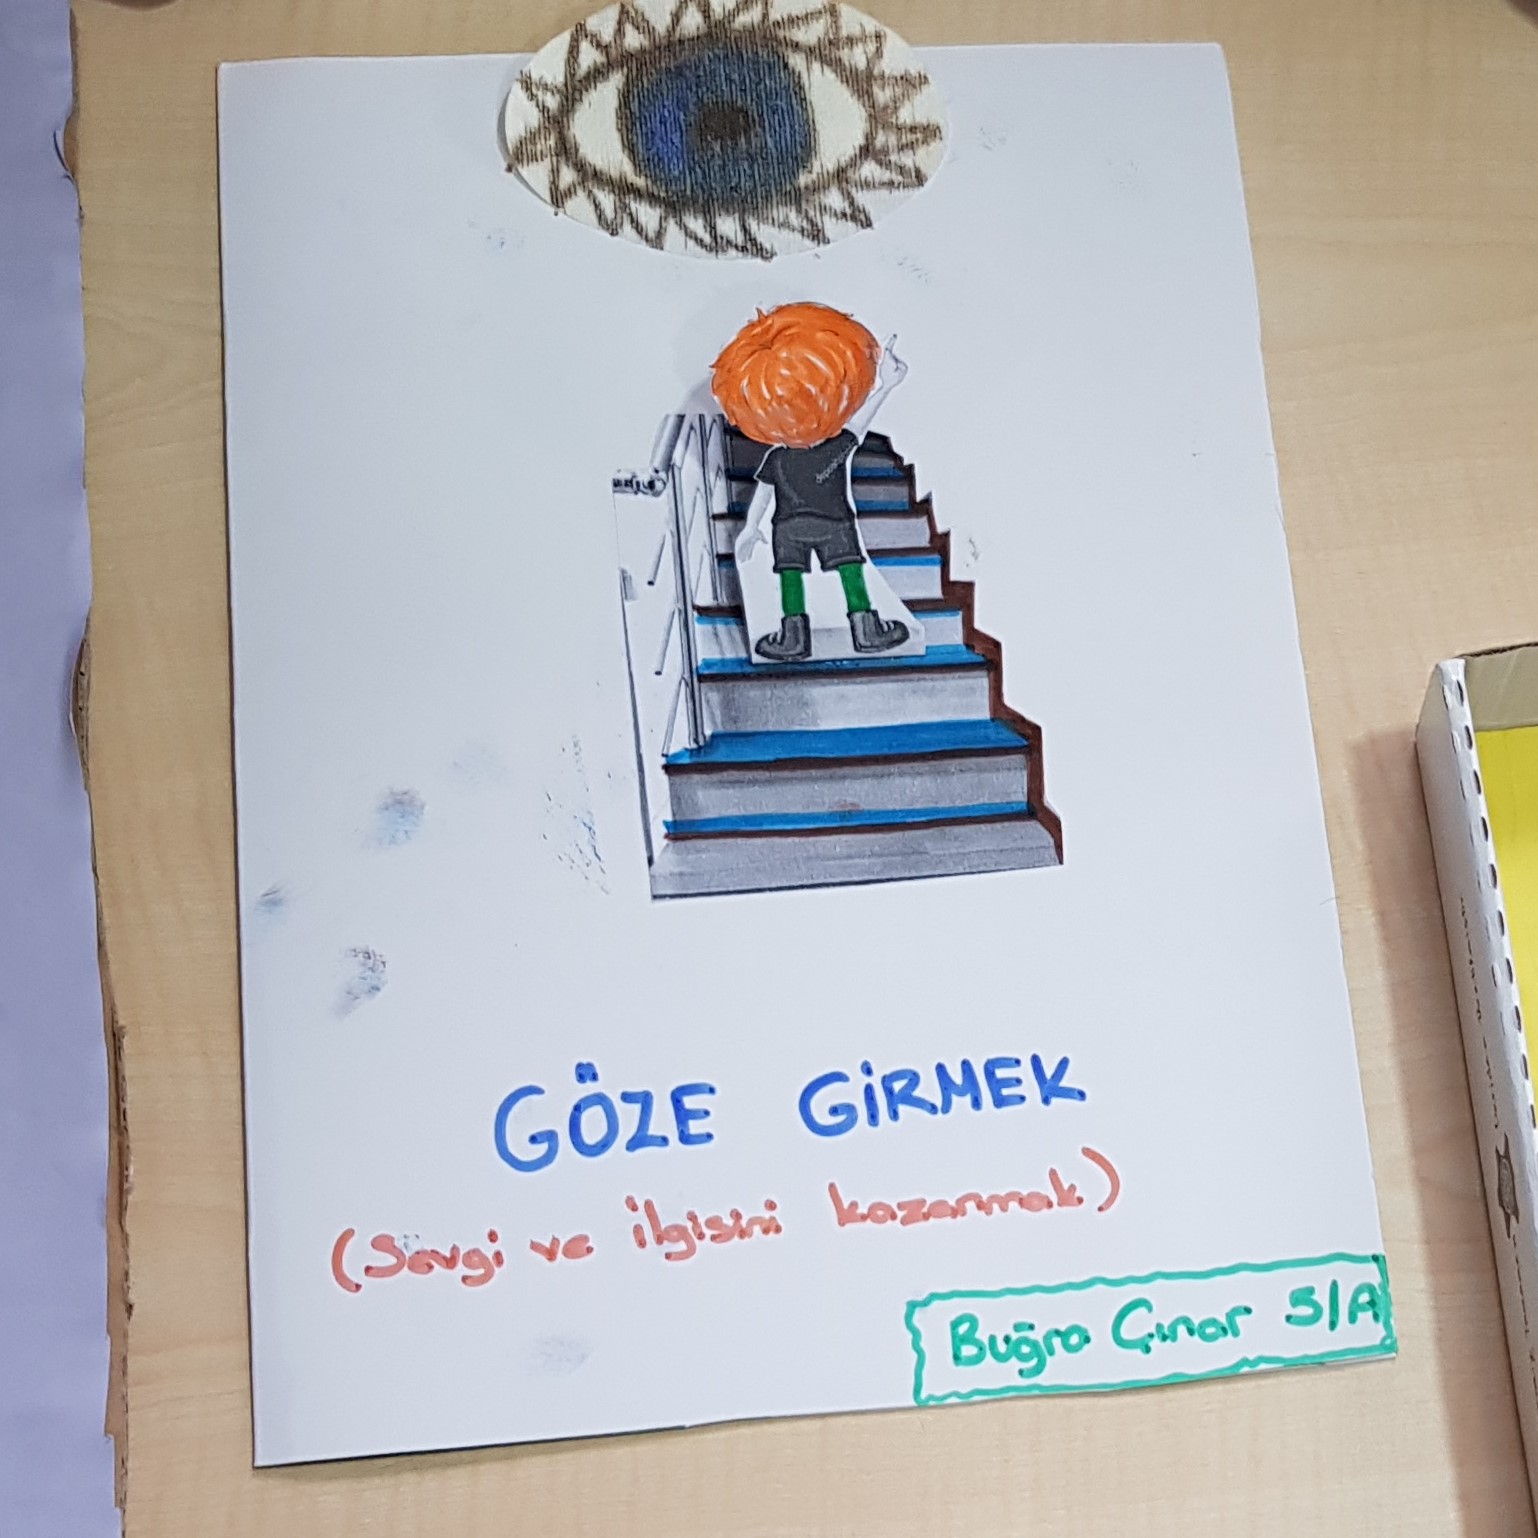 GÖZE GİRMEK
(Sevgi ve ilgisini kazanmak)
Buğra Çınar 5/A